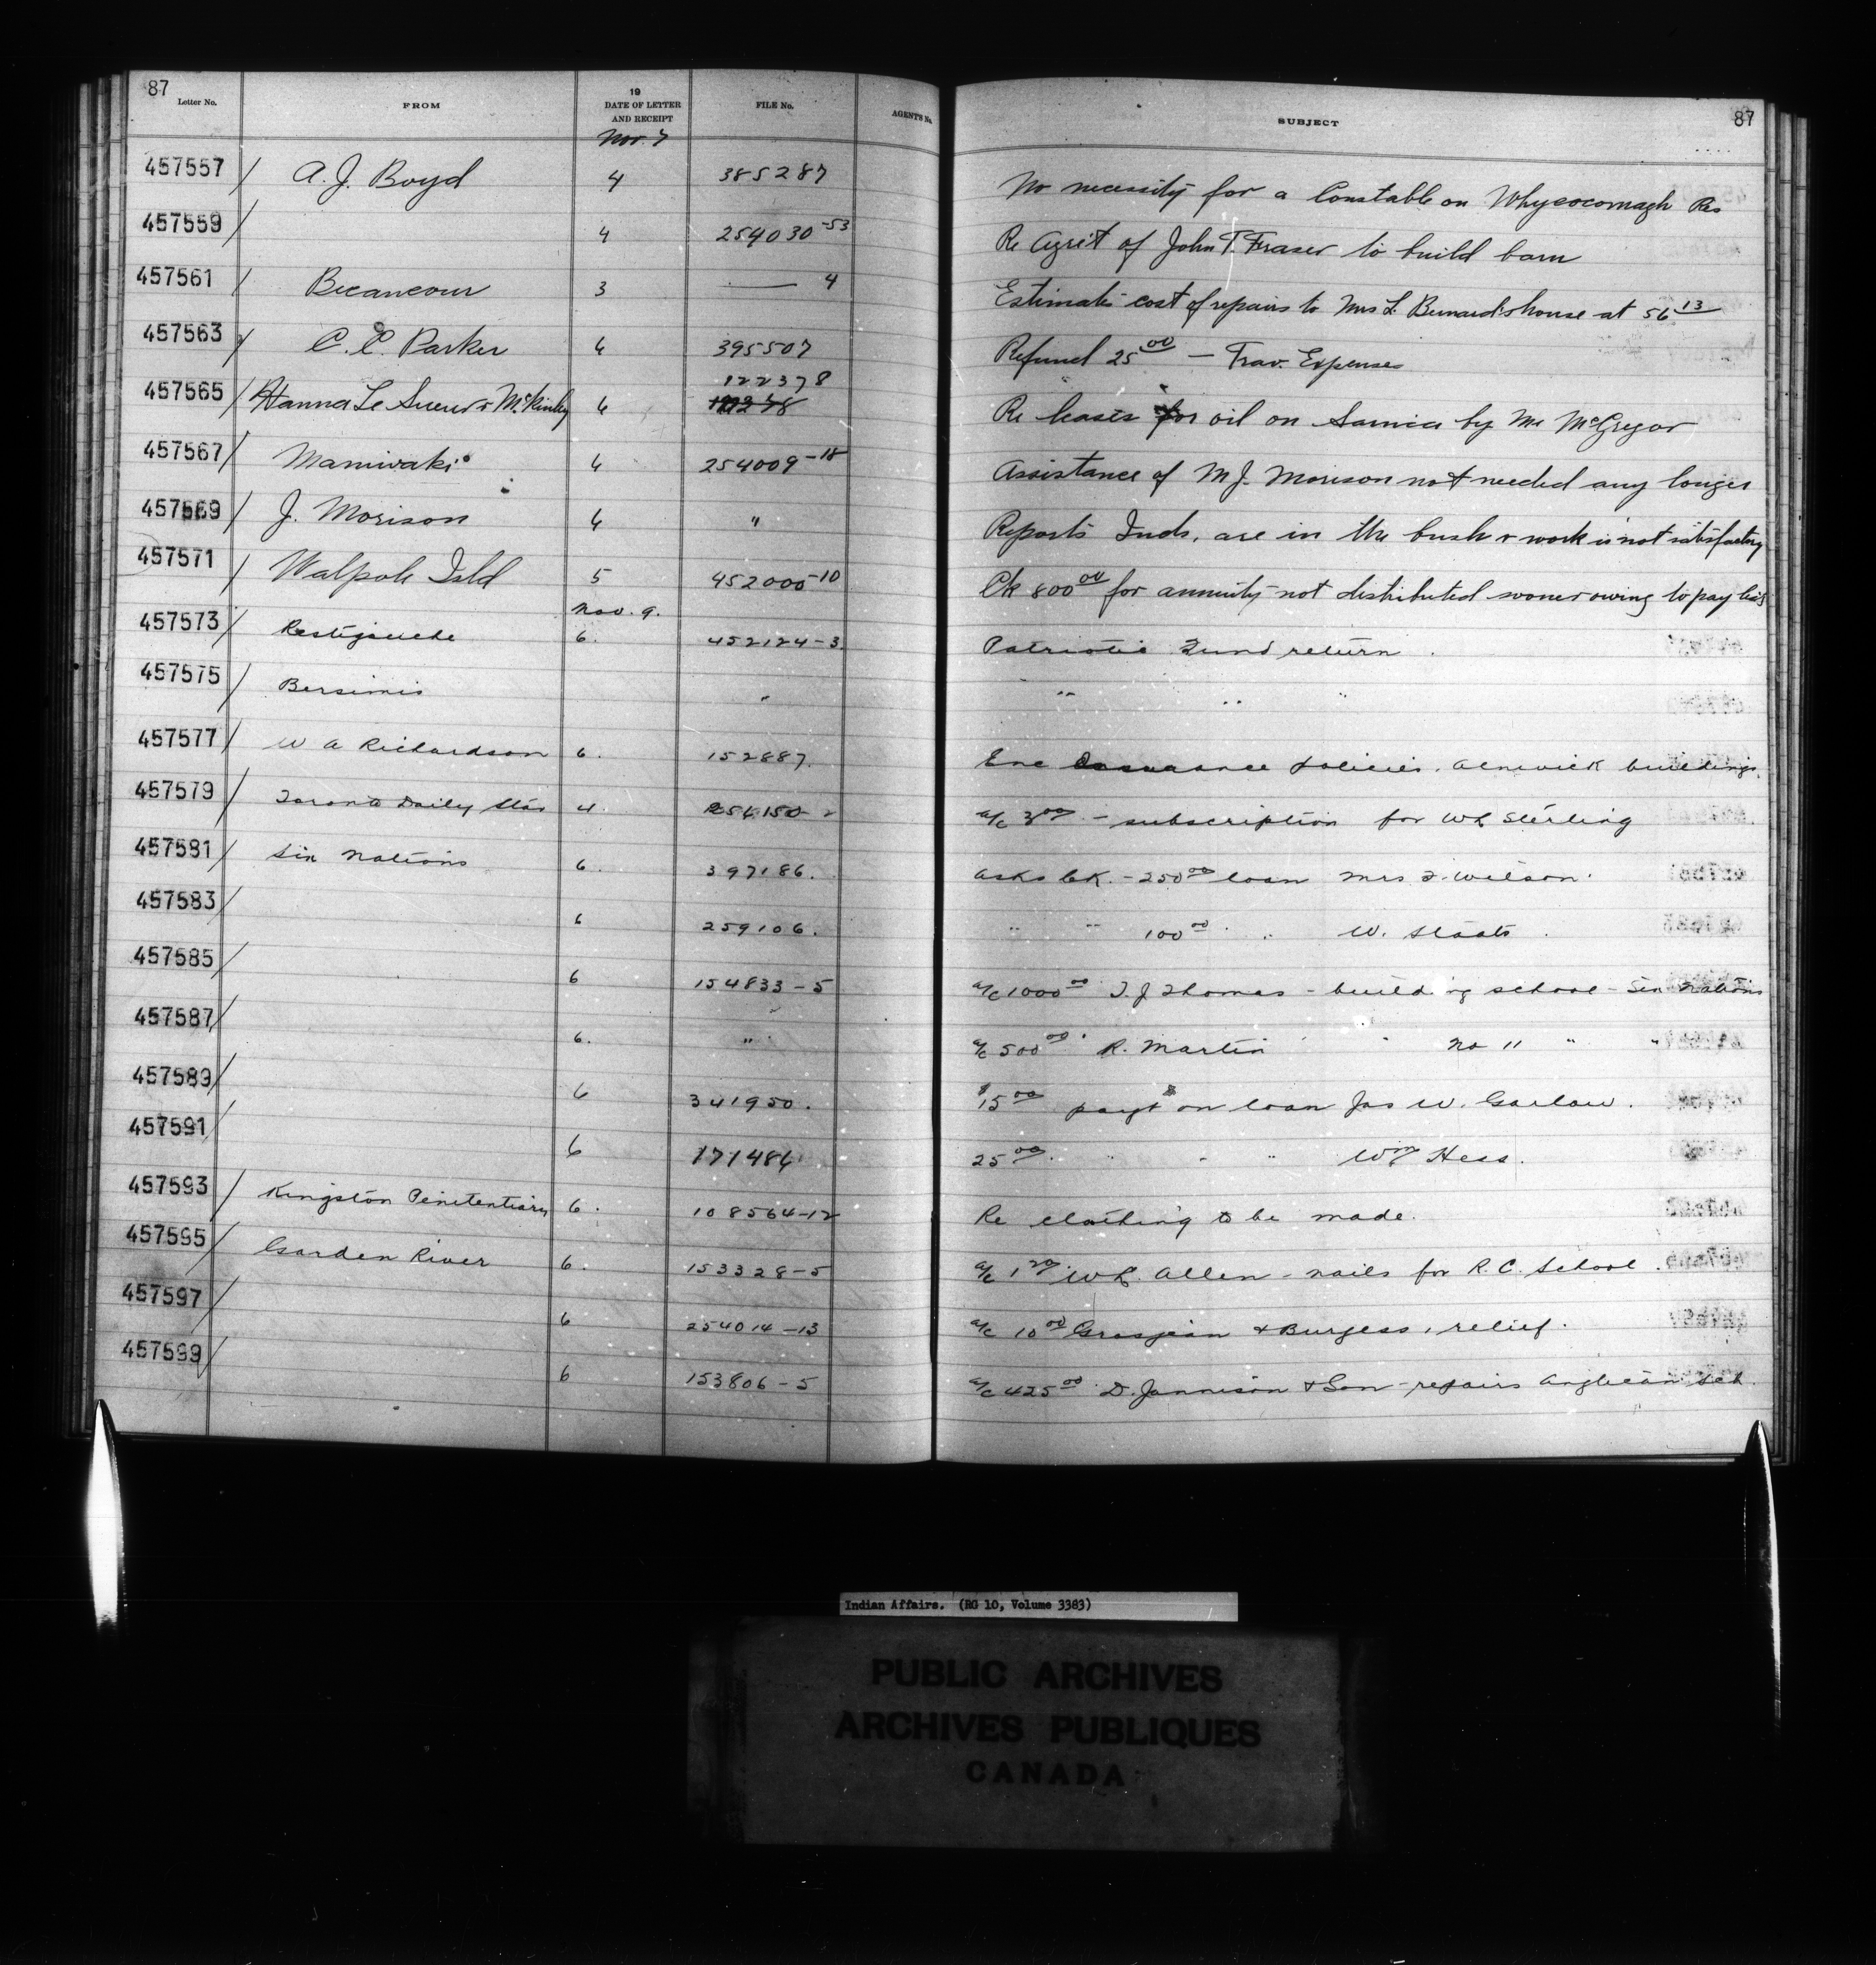 87 Letter No. FROM 19 DATE OF LETTER AND RECEIPT FILE No. AGENT'S No. SUBJECT 87
Nov. 7
457557 A. J. Boyd 4 385287 No necessity for a Constable on Whycocomagh Res
457559 4 254030-53 Re Agrit of John T. Fraser to build barn
457561 Becancour 3 — 4 Estimates cost of repairs to Mrs L. Bernard's house at 56 13
457563 C. C. Parker 4 395507 Refund 25 00 — Trav. Expenses
457565 Hanna Le Sueur & McKinley 4 122378 Re leases for oil on Sarnia by Mr McGregor
457567 Maniwaki 4 254009-18 Assistance of M J. Morison not needed any longer
457569 J. Morison 4 " Reports Inds. are in the bush & work is not satisfactory
457571 Walpole Isld 5 452000-10 Ck 800 00 for annuity not distributed sooner owing to pay lists
Nov. 9.
457573 Restigouche 6. 452124-3. Patriotic Fund return.
457575 Bersimis " " " "
457577 W A Richardson 6. 152887. Enc Insurance policies. Alnwick buildings.
457579 Toronto Daily Star 4. 254150-2 a/c 3 00 - subscription for W L Sterling
457581 Six Nations 6. 397186. Asks Ck. - 250 00 loan Mrs F. Wilson.
457583 6 259106. " " 100 00 " W. Staats.
457585 6 154833-5 a/c 1000 00 T. J Thomas - building school - Six Nations
457587 6. " a/c 500 00 R. Martin " No 11 " "
457589 6 341950. $15 00 payt on loan Jas W. Garlow.
457591 6 171486 25 00. " " " Wm Hess.
457593 Kingston Penitentiary 6. 108564-12 Re clothing to be made.
457595 Garden River 6. 153328-5 a/c 1 20. W L. Allen - nails for R. C. School.
457597 6 254014-13 a/c 10 00 Grasjean & Burgess, relief.
457599 6 153806-5 a/c 425 00 D. Jannison & Son - repairs Anglican Sch.
Indian Affairs. (RG 10, Volume 3383)
PUBLIC ARCHIVES
ARCHIVES PUBLIQUES
CANADA